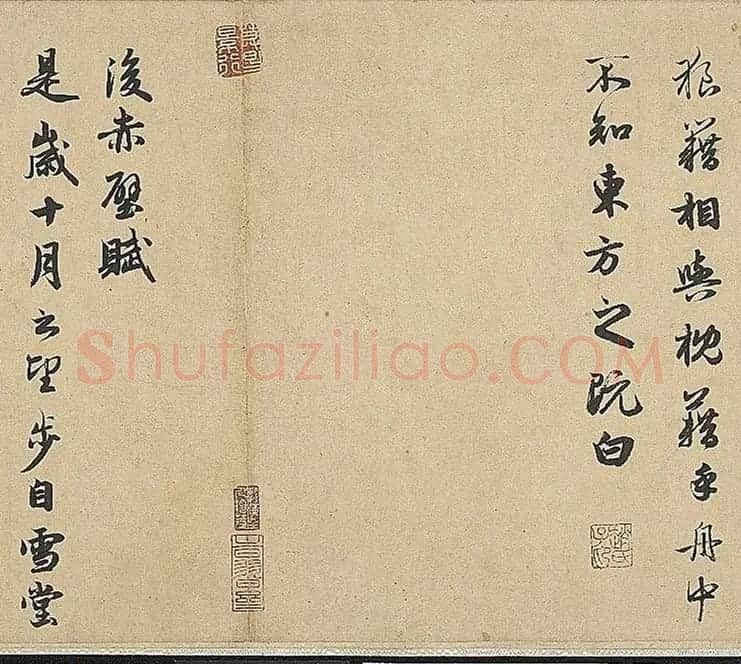 狼藉相與枕藉乎舟中
不知東方之既白
後赤壁賦
是歲十月之望步自雪堂
趙氏子昂
Shufaziliao.COM